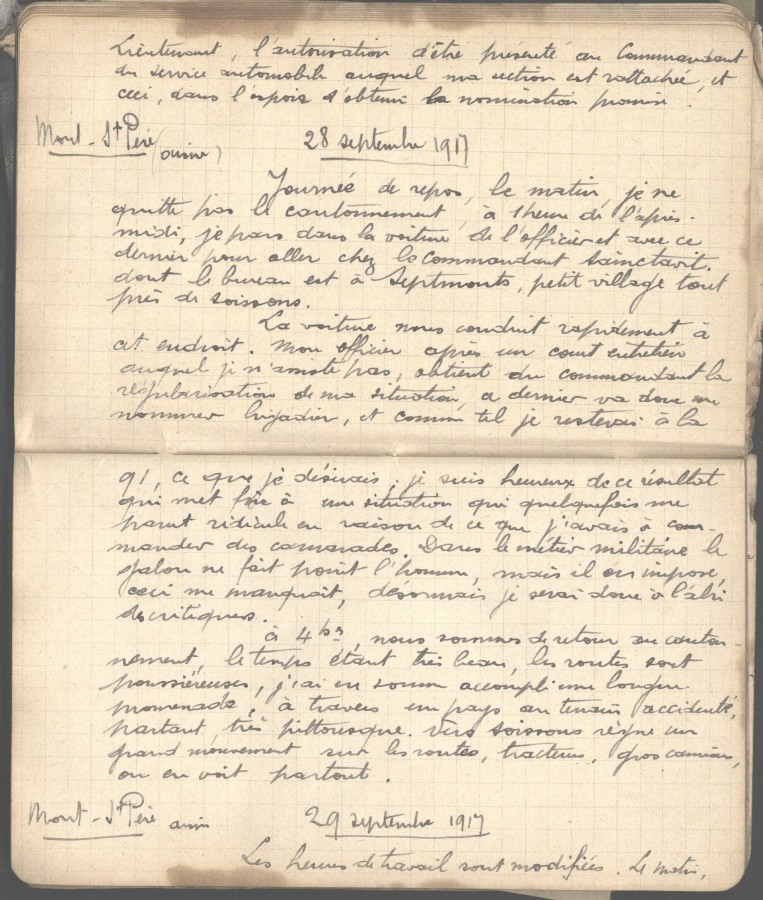 Lieutenant, l'autorisation d'être présenté au Commandant
du service automobile auquel ma section est rattachée, et
ceci, dans l'espoir d'obtenir la nomination promise.
Mont-St Père (aisne) 28 septembre 1917
Journée de repos, le matin, je ne
quitte pas le cantonnement, à 1 heure de l'après-
midi, je pars dans la voiture de l'officier et avec ce
dernier pour aller chez le commandant Sainctavit.
dont le bureau est à Septmonts, petit village tout
près de Soissons.
La voiture nous conduit rapidement à
cet endroit. Mon officier après un court entretien
auquel je n'assiste pas, obtient du commandant la
régularisation de ma situation, ce dernier va donc me
nommer brigadier, et comme tel je resterai à la
91, ce que je désirais, je suis heureux de ce résultat
qui met fin à une situation qui quelquefois me
parut ridicule en raison de ce que j'avais à com-
mander des camarades. Dans le métier militaire le
galon ne fait point l'homme, mais il en impose,
ceci me manquait, désormais je serai donc à l'abri
des critiques.
à 4 hrs, nous sommes de retour au canton-
nement, le temps étant très beau, les routes sont
poussiéreuses, j'ai en somme accompli une longue
promenade, à travers un pays au terrain accidenté,
partant, très pittoresque. Vers Soissons règne un
grand mouvement sur les routes, tracteurs, gros camions,
on en voit partout.
Mont-St Père aisne 29 septembre 1917
Les heures de travail sont modifiées. Le matin,